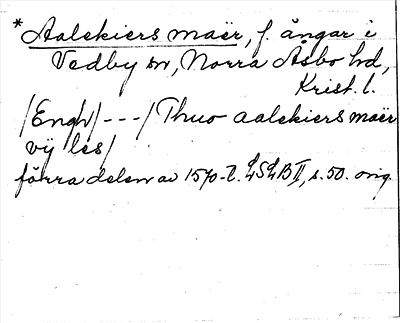 *Aalekiers maër, f. ångar i
Vedby sn, Norra Åsbo hd,
Krist. l.
/Engh/ --- / Thuo aalekiers maër
vÿ les/
förra delen av 1570-t. LSLB II, s. 50. orig.